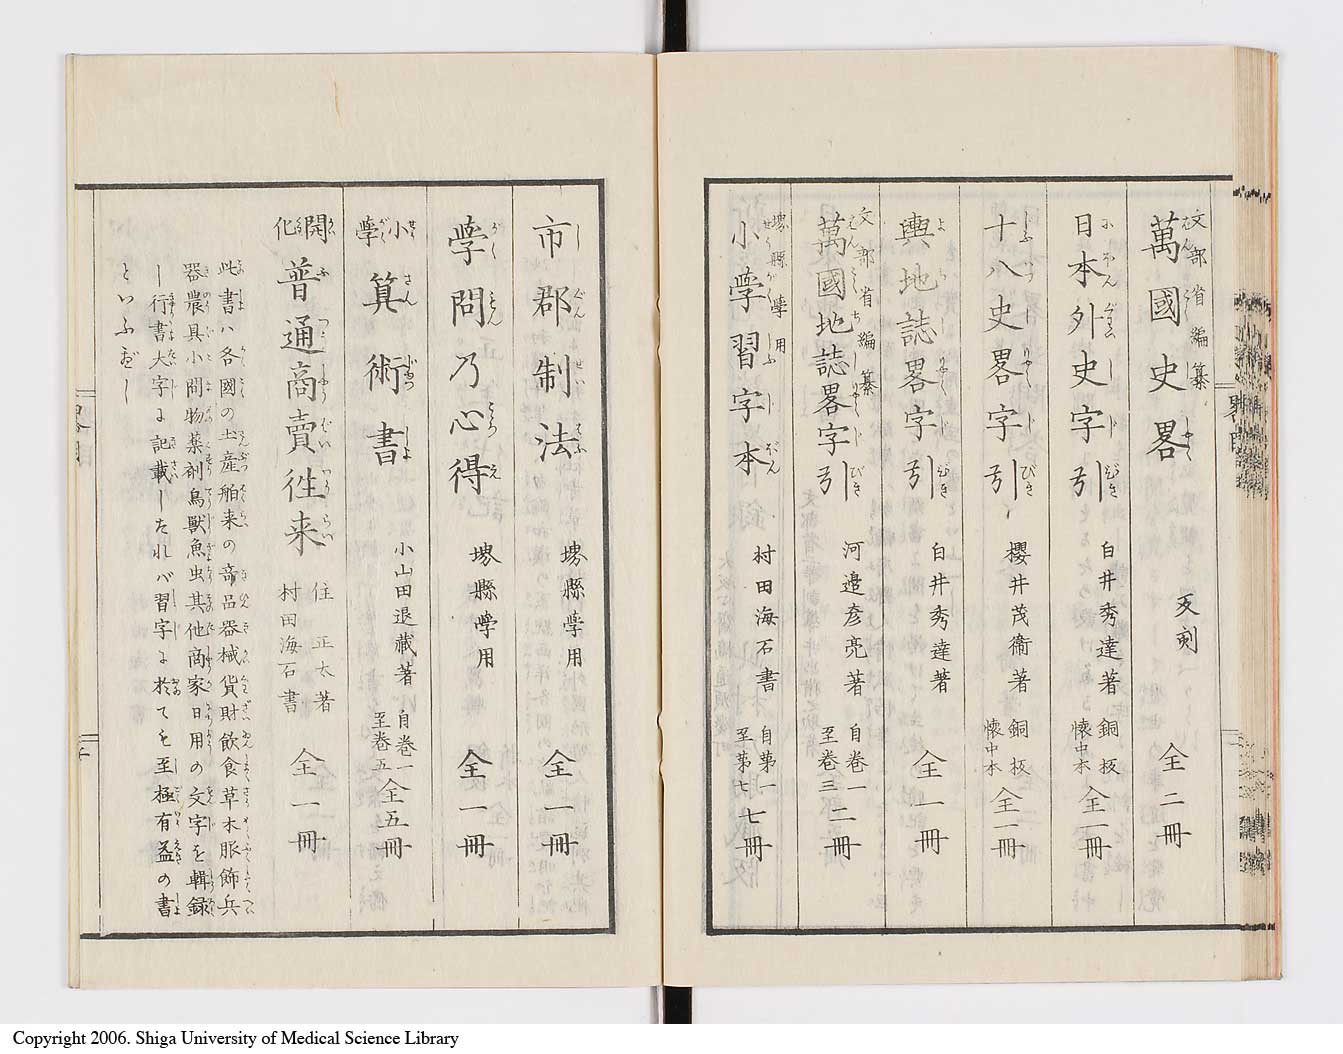 文部省編纂
萬國史畧 反刻 全二冊
日本外史字引 白井秀達著 銅板懐中本 全一冊
十八史畧字引 櫻井茂衞著 銅板懐中本 全一冊
輿地誌畧字引 白井秀達著 全一冊
文部省編纂
萬國地誌畧字引 河邉彦亮著 自巻一至巻三 二冊
堺縣學用
小學習字本 村田海石書 自第一至第七 七冊
市郡制法 堺縣學用 全一冊
学問乃心得 堺縣學用 全一冊
小學算術書 小山田退藏著 自巻一至巻五 全五冊
開化普通商賣徃来 住正太著 村田海石書 全一冊
此書ハ各國の土産舶来の奇品器械貨財飲食草木服飾兵
器農具小間物薬剤鳥獣魚虫其他商家日用の文字を輯録
し行書大字に記載したれバ習字に於ても至極有益の書
といふべし
Copyright 2006. Shiga University of Medical Science Library